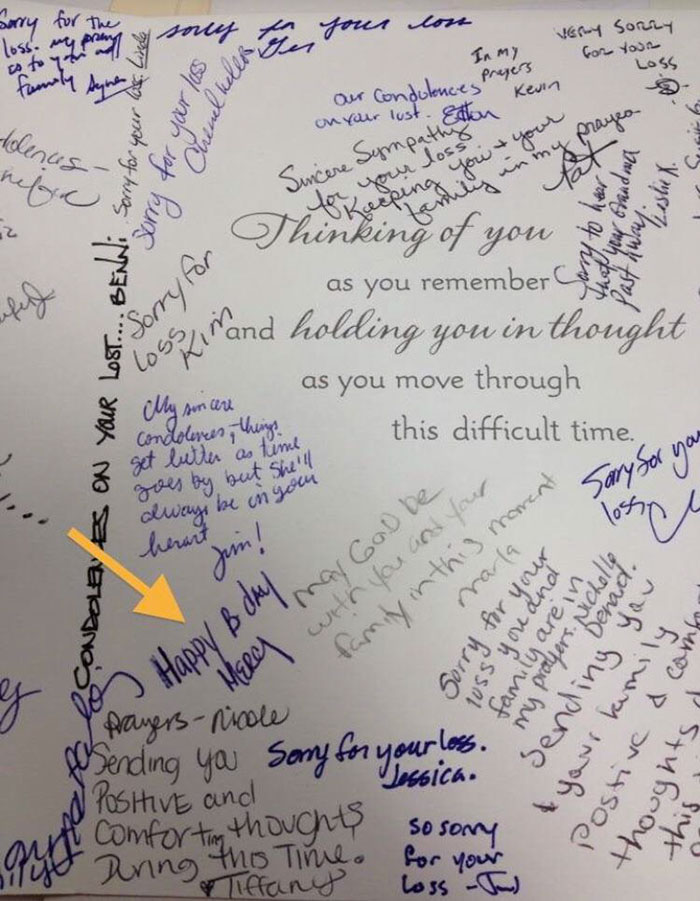 Sorry for the
loss. my prayers
go to you and
family
sorry for your loss
Sorry for your loss Linda
Sorry for your loss
In my
prayers
Kevin
VERY SORRY
FOR YOUR
LOSS
our Condolences
on your lost.
Sincere Sympathy
for your loss.
Keeping you + your
family in my prayers
Pat
Sorry to hear
that your Grandma
Past away.
Leslie K.
Thinking of you
as you remember
and holding you in thought
as you move through
this difficult time.
CONDOLENCES ON YOUR LOST.... BENNI
Sorry For
Loss
Kim
My sincere
condolences, things
get better as time
goes by but she'll
always be in your
heart
Jim!
Sorry for your
loss
may God be
with you and your
family in this moment
marla
Happy B day
Mercy
Sorry for your
loss you and
family are in
my prayers. Nicholle
Sending you
& your family
Postive &
thoughts
this
Prayers - Nicole
Sending you
Positive and
Comforting thoughts
During this Time.
Tiffany
Sorry for your loss.
Jessica.
so sorry
for your
loss